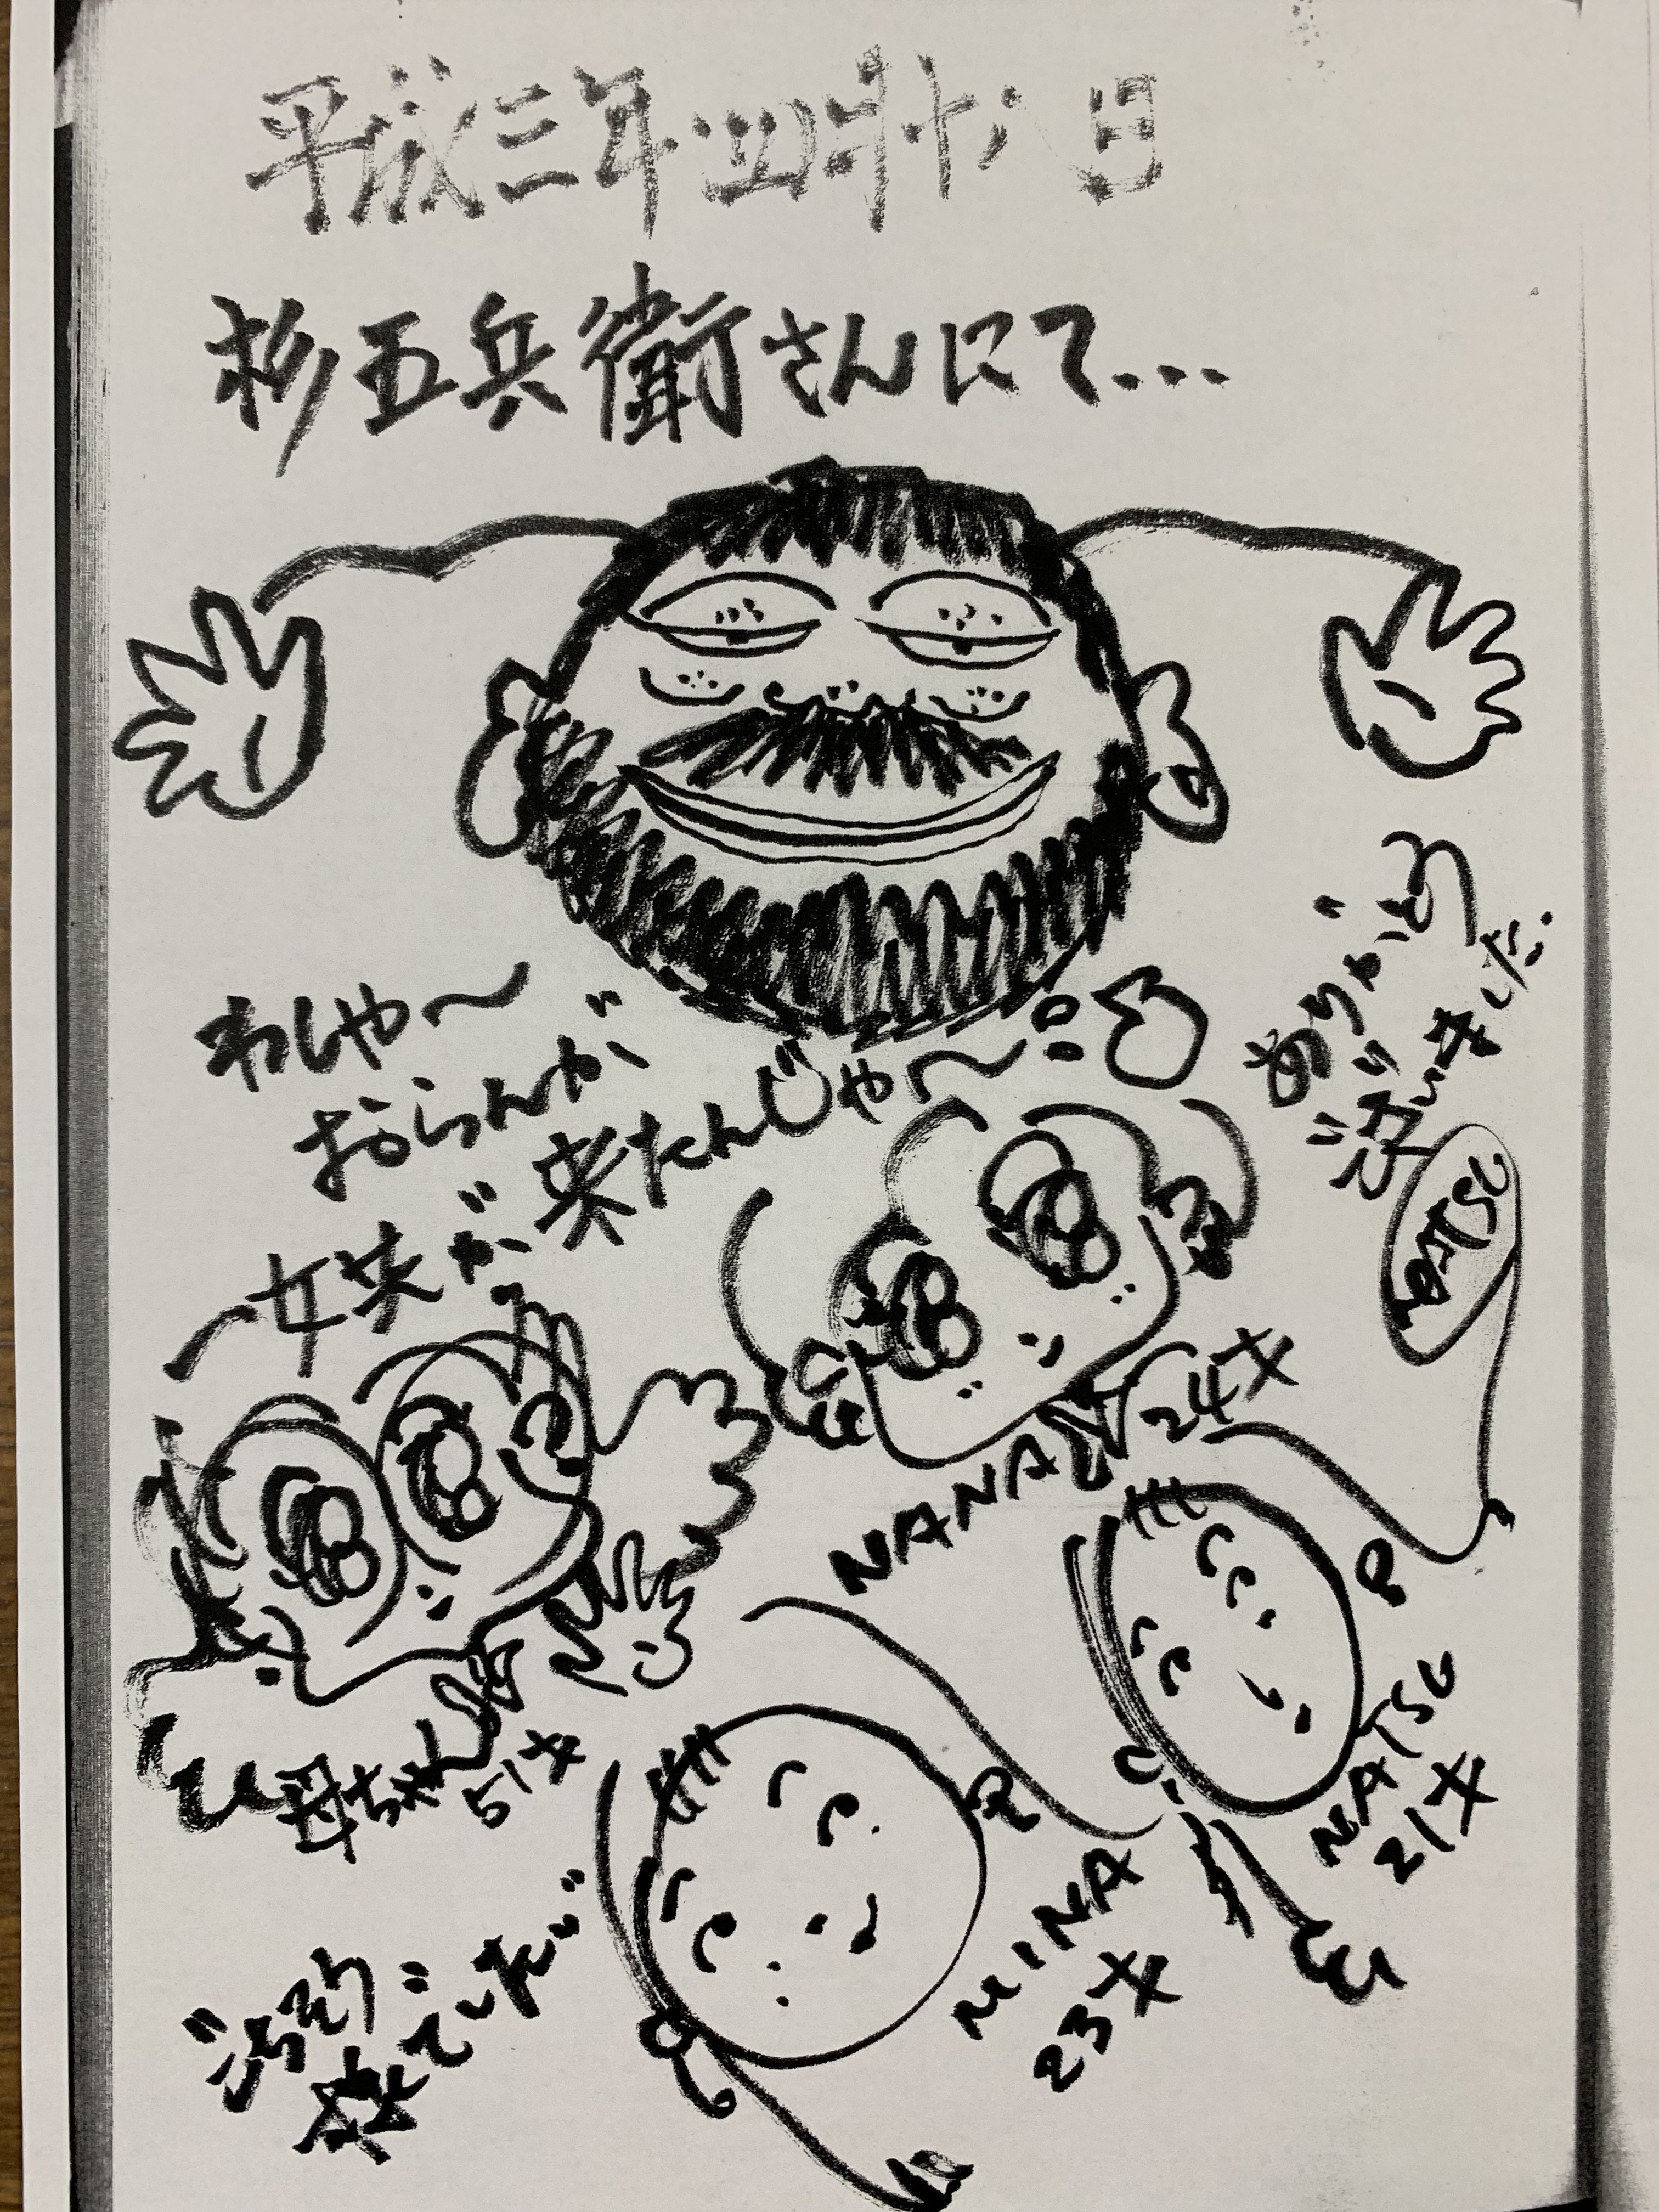 平成三年四月十八日
杉五兵衛さんにて...
わしゃ〜
おらんが
一女共が来たんじゃ〜
ありがとう
ございました.
NATSU
NANA
24才
母ちゃん
51才
NATSU
21才
NINA
23才
ごちそう
さまでした